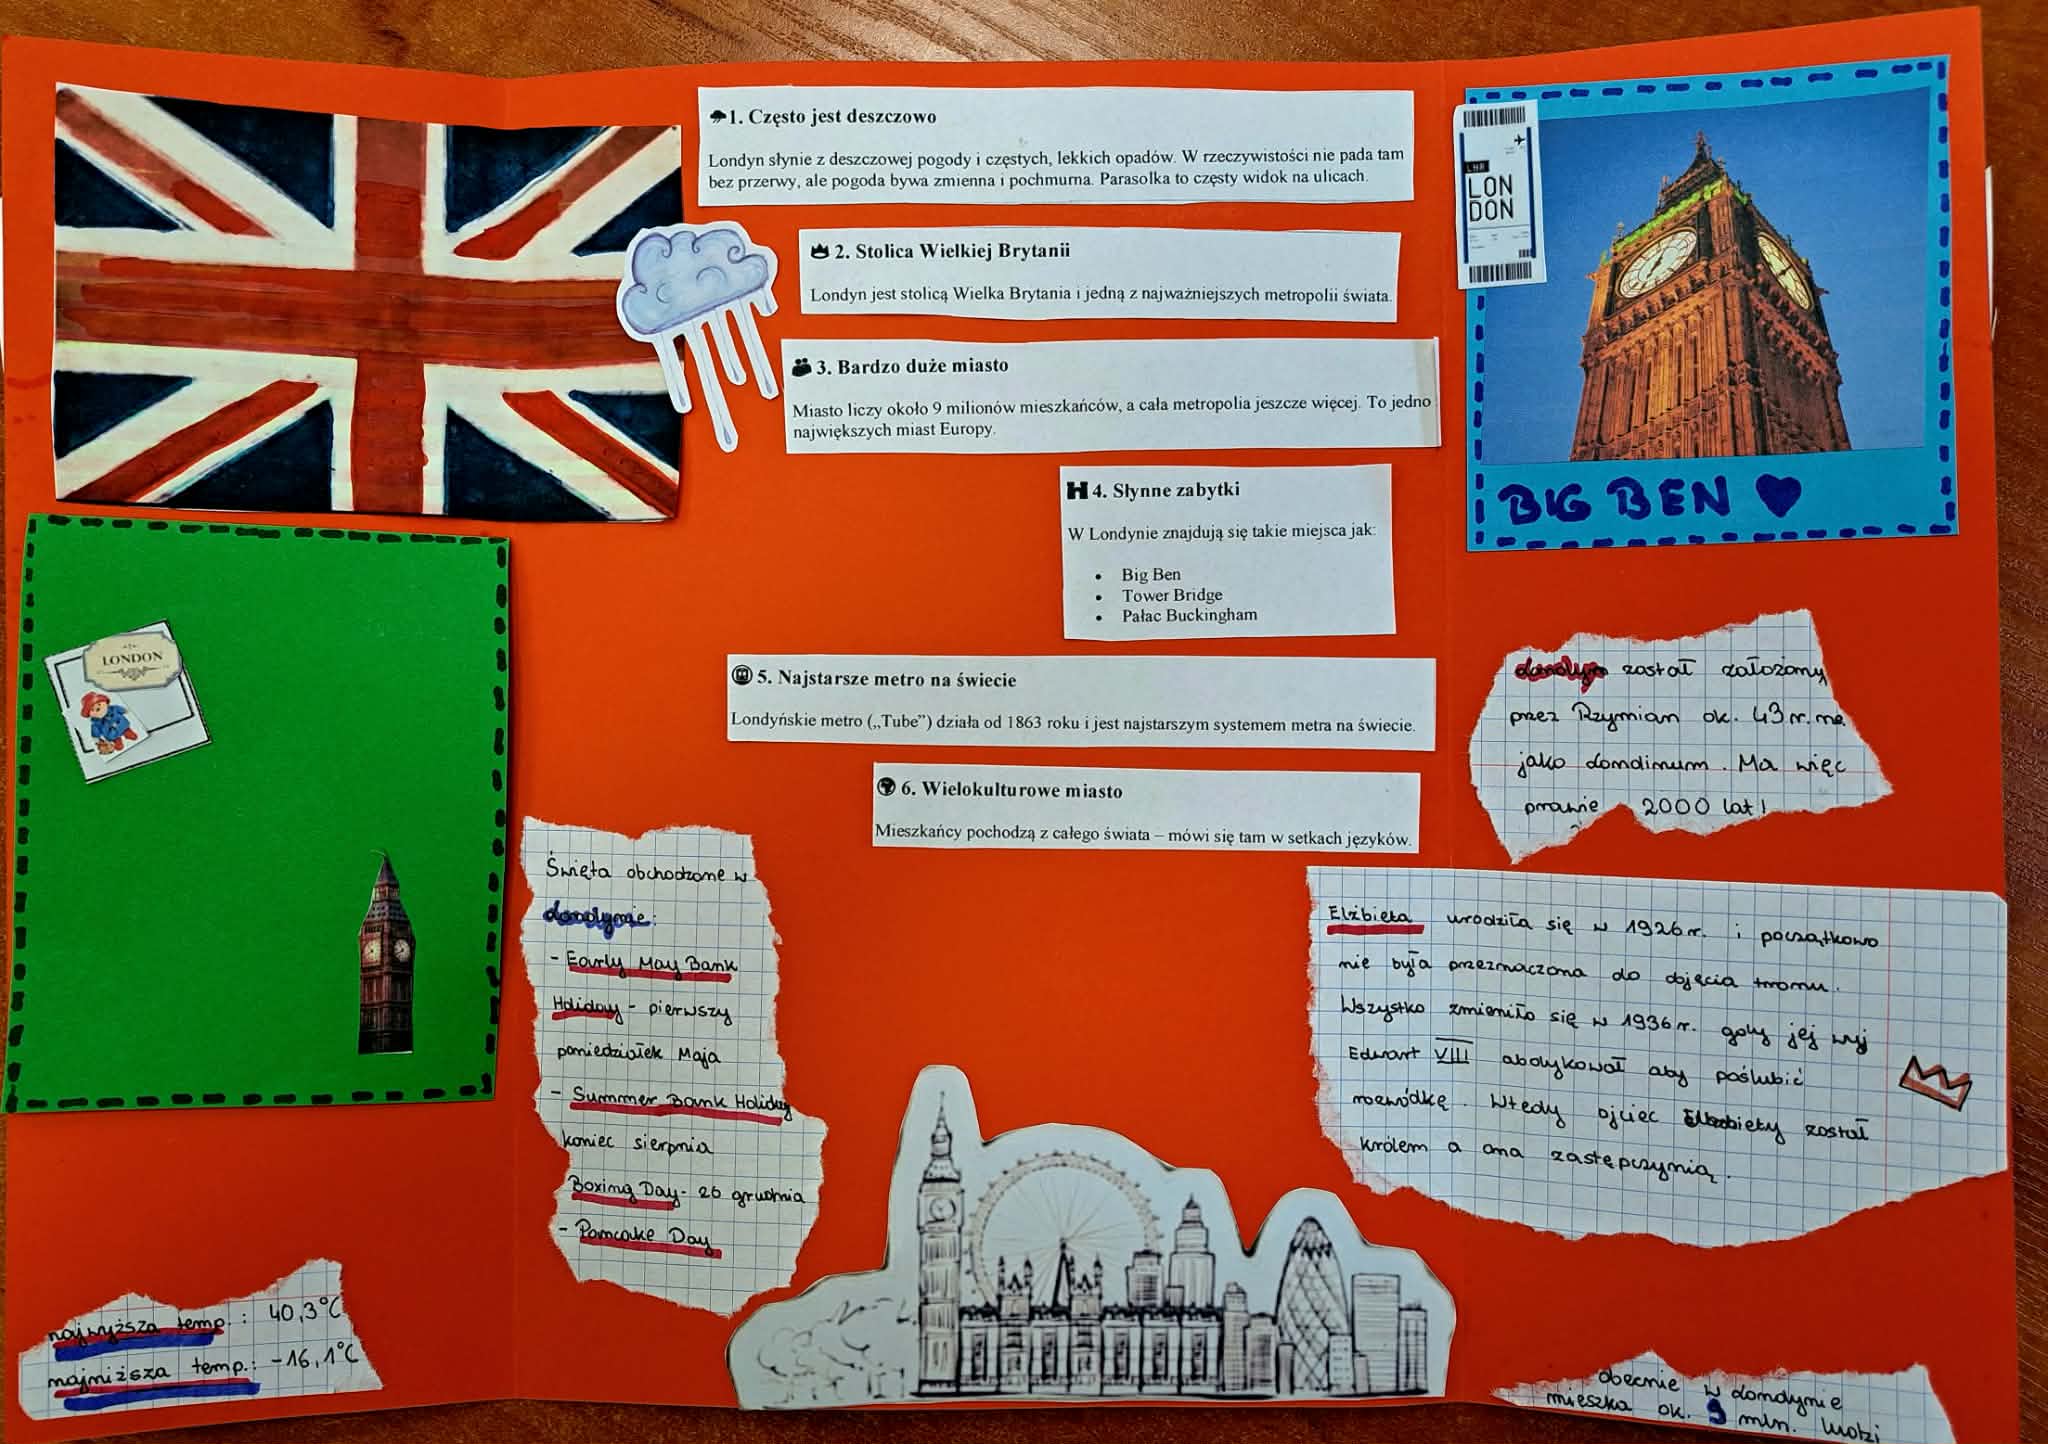 1. Często jest deszczowo
Londyn słynie z deszczowej pogody i częstych, lekkich opadów. W rzeczywistości nie pada tam
bez przerwy, ale pogoda bywa zmienna i pochmurna. Parasolka to częsty widok na ulicach.
2. Stolica Wielkiej Brytanii
Londyn jest stolicą Wielka Brytania i jedną z najważniejszych metropolii świata.
3. Bardzo duże miasto
Miasto liczy około 9 milionów mieszkańców, a cała metropolia jeszcze więcej. To jedno
największych miast Europy.
4. Słynne zabytki
W Londynie znajdują się takie miejsca jak:
• Big Ben
• Tower Bridge
• Pałac Buckingham
5. Najstarsze metro na świecie
Londyńskie metro („Tube”) działa od 1863 roku i jest najstarszym systemem metra na świecie.
6. Wielokulturowe miasto
Mieszkańcy pochodzą z całego świata – mówi się tam w setkach języków.
LHR
LON
DON
BIG BEN
LONDON
londyn został założony
przez Rzymian ok. 43 r. ne.
jako londinum. Ma więc
prawie 2000 lat!
Święta obchodzone w
londynie:
- Early May Bank
Holiday - pierwszy
poniedziałek Maja
- Summer Bank Holiday
koniec sierpnia
Boxing Day - 26 grudnia
- Pancake Day
Elżbieta urodziła się w 1926 r. i początkowo
nie była przeznaczona do objęcia tronu.
Wszystko zmieniło się w 1936 r. gdy jej wuj
Edwart VIII abdykował aby poślubić
rozwódkę. Wtedy ojciec Elżbiety został
królem a ona zastępczynią.
najwyższa temp.: 40,3°C
najniższa temp.: -16,1°C
obecnie w londynie
mieszka ok. 9 mln. ludzi